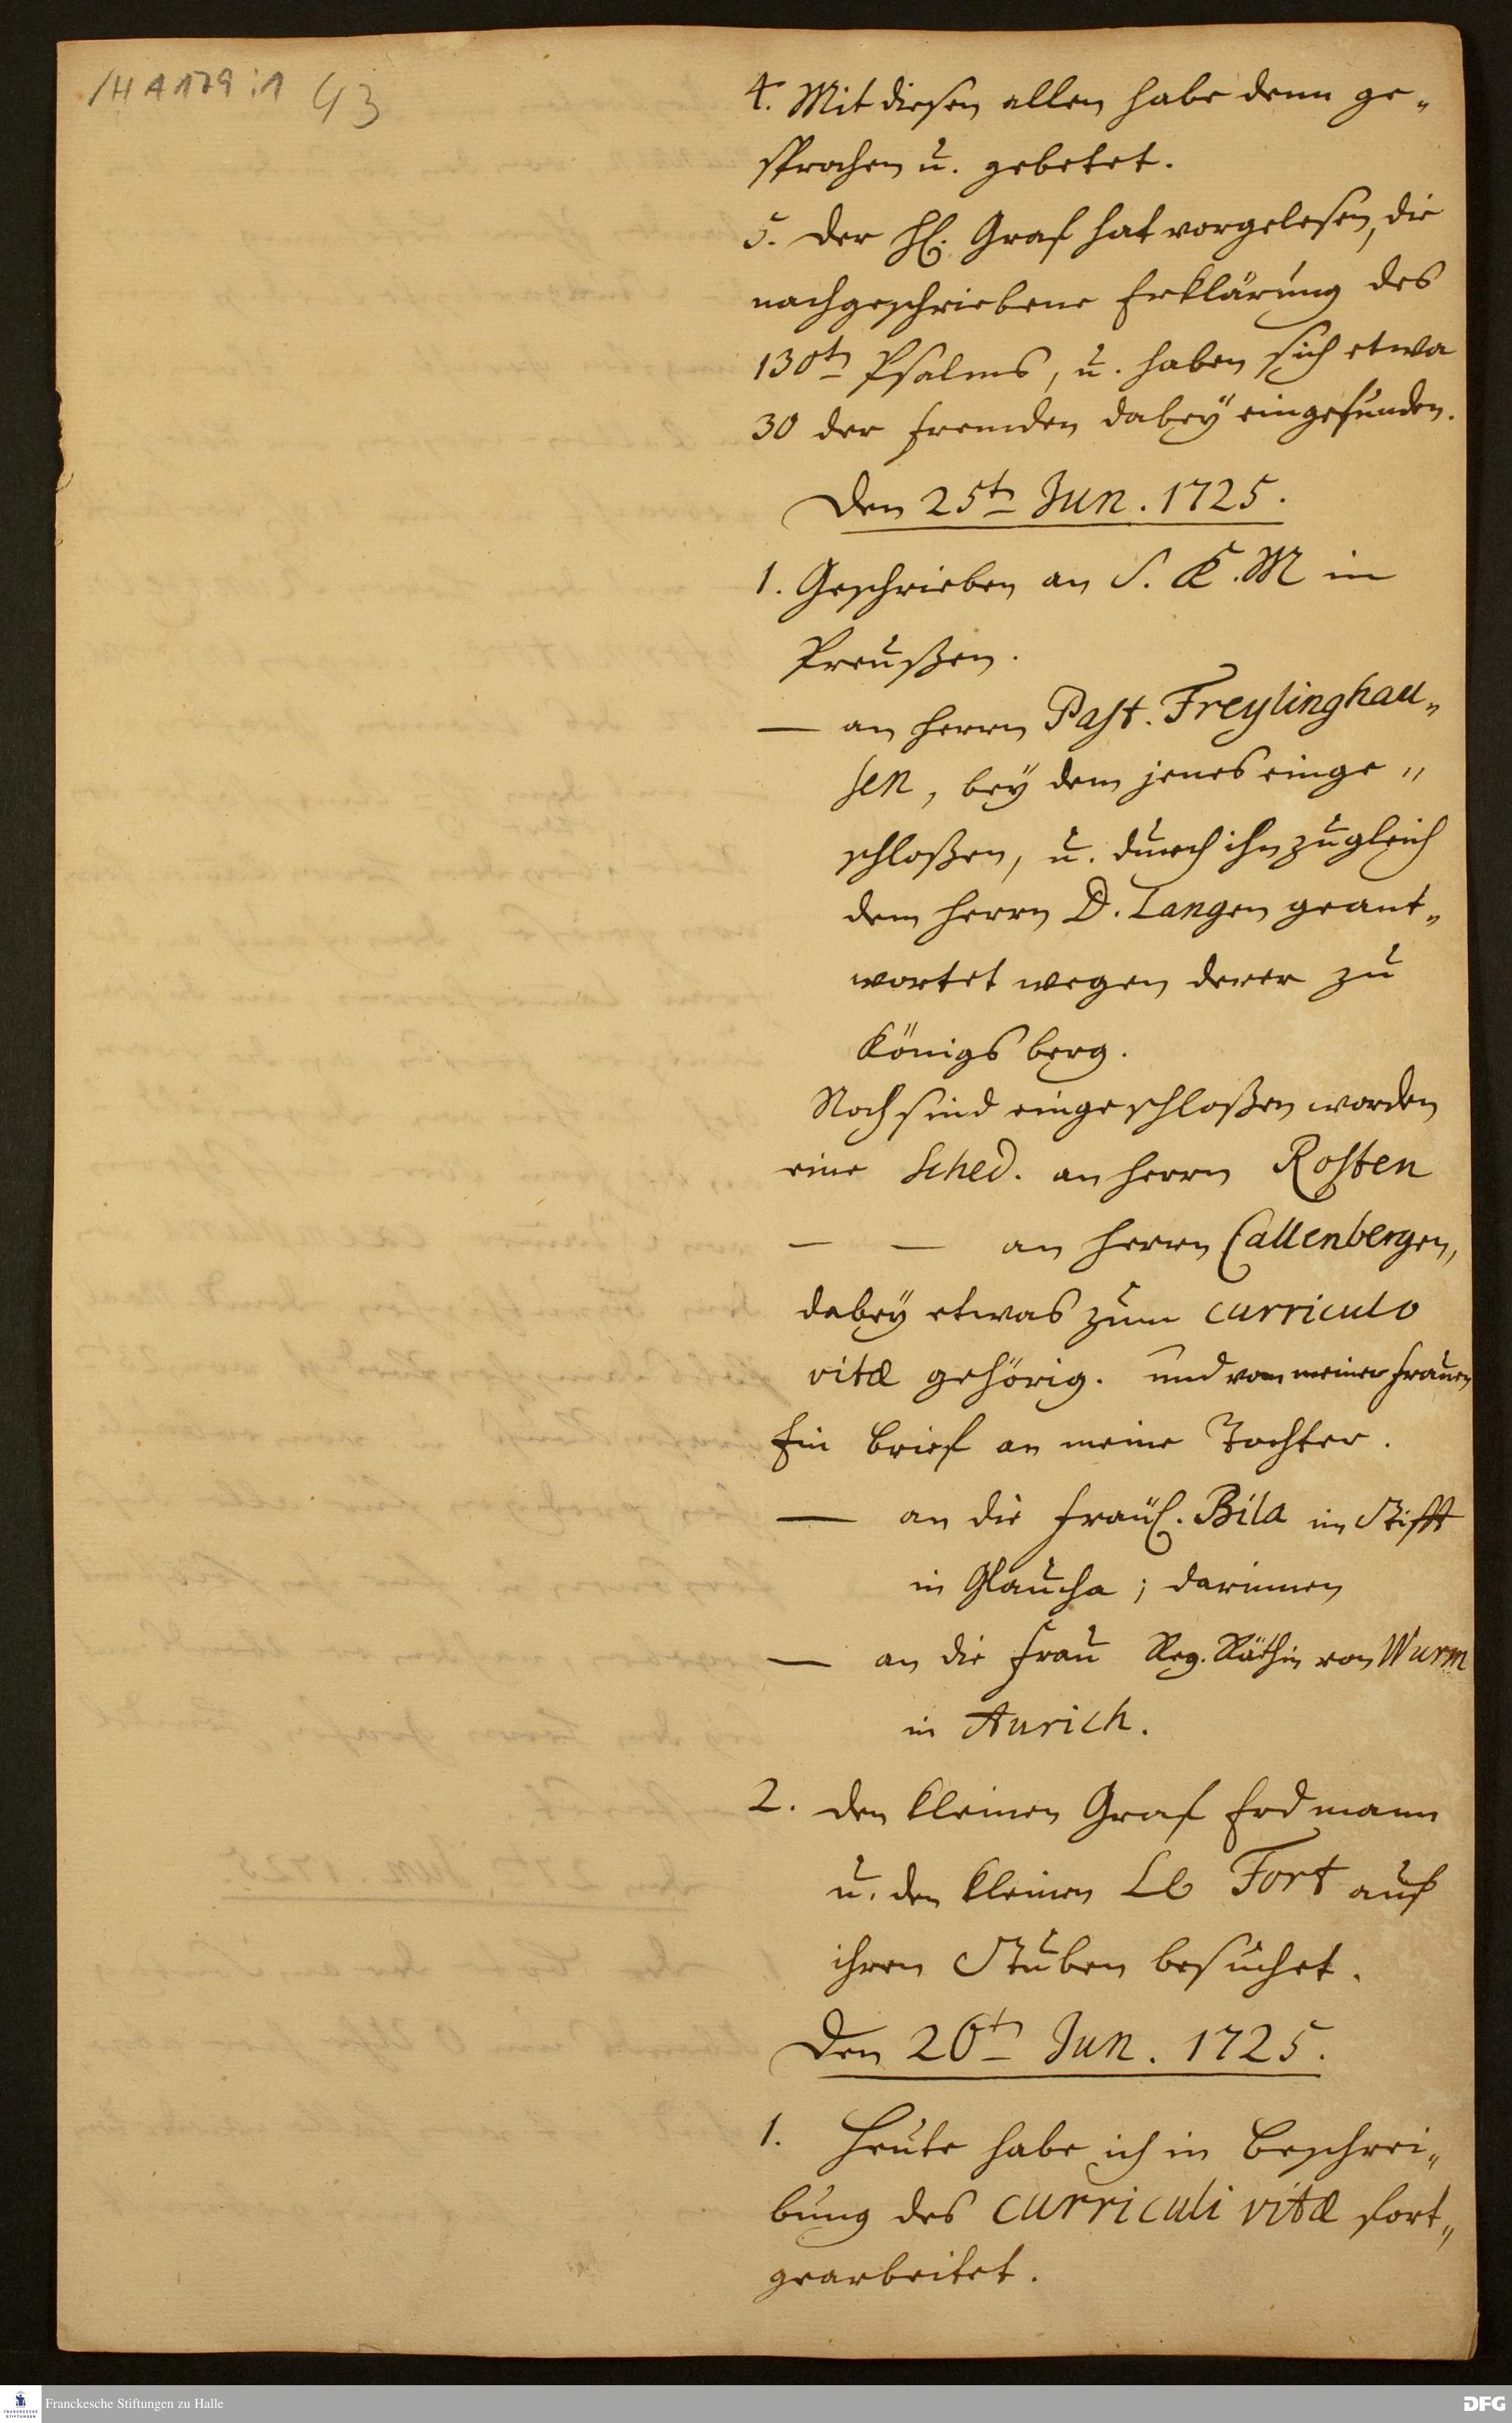 /H A 179 : 1 43
4. Mit diesen allen habe denn ge„
sprochen u. gebetet.
5. Der H. Graf hat vorgelesen, die
nachgeschriebene Erklärung des
130tn Psalms, u. haben sich etwa
30 der fremden dabeÿ eingefunden.
Den 25tn Jun. 1725.
1. Geschrieben an S. K. M in
Preußen.
— an Herrn Past. Freylinghau„
sen, beÿ dem jenes einge„
schloßen, u. durch ihn zugleich
dem Herrn D. Langen geant„
wortet wegen derer zu
Königsberg.
Noch sind eingeschloßen worden
eine Sched. an Herrn Rosten
— — an Herrn Callenbergen,
dabeÿ etwas zum curriculo
vitæ gehörig. und von meiner Frauen
Ein brief an meine Tochter.
— an die Fräul. Bila im Stifft
in Glaucha; darinnen
— an die Frau Reg. Räthin von Wurm
in Aurich.
2. den kleinen Graf Erdmann
u. den kleinen Le Fort auf
ihren Stuben besuchet.
Den 26tn Jun. 1725.
1. Heute habe ich in Beschrei„
bung des curriculi vitæ fort„
gearbeitet.
Franckesche Stiftungen zu Halle
DFG